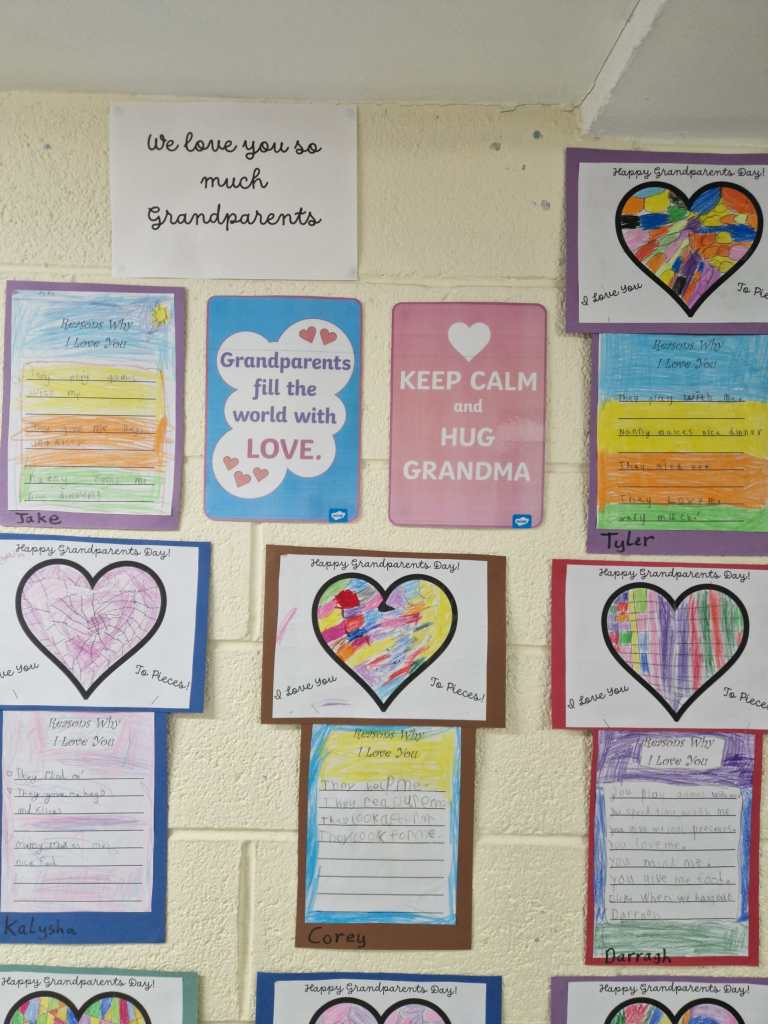 We love you so
much
Grandparents
Happy Grandparents Day!
I Love You
To Pieces!
Reasons Why
I Love You
They play games
with me
They give me hugs
Jake
Grandparents
fill the
world with
LOVE.
twinkl
KEEP CALM
and
HUG
GRANDMA
twinkl
Reasons Why
I Love You
They play with me.
Nanny makes nice dinner
They mind me
They Love me
very much!
Tyler
Happy Grandparents Day!
ove You
To Pieces!
Reasons Why
I Love You
They Mind me
They give me hugs
and kisses
nice food
Kalysha
Happy Grandparents Day!
I Love You
To Pieces!
Reasons Why
I Love You
They help me.
They look after me
They look for me.
Corey
Happy Grandparents Day!
I Love You
To Pieces
Reasons Why
I Love You
You play games with me
You spend time with me
You love me.
You mind me.
You give me food.
Darragh
Darragh
Happy Grandparents Day!
Happy Grandparents Day!
Happy Grandparents Day!